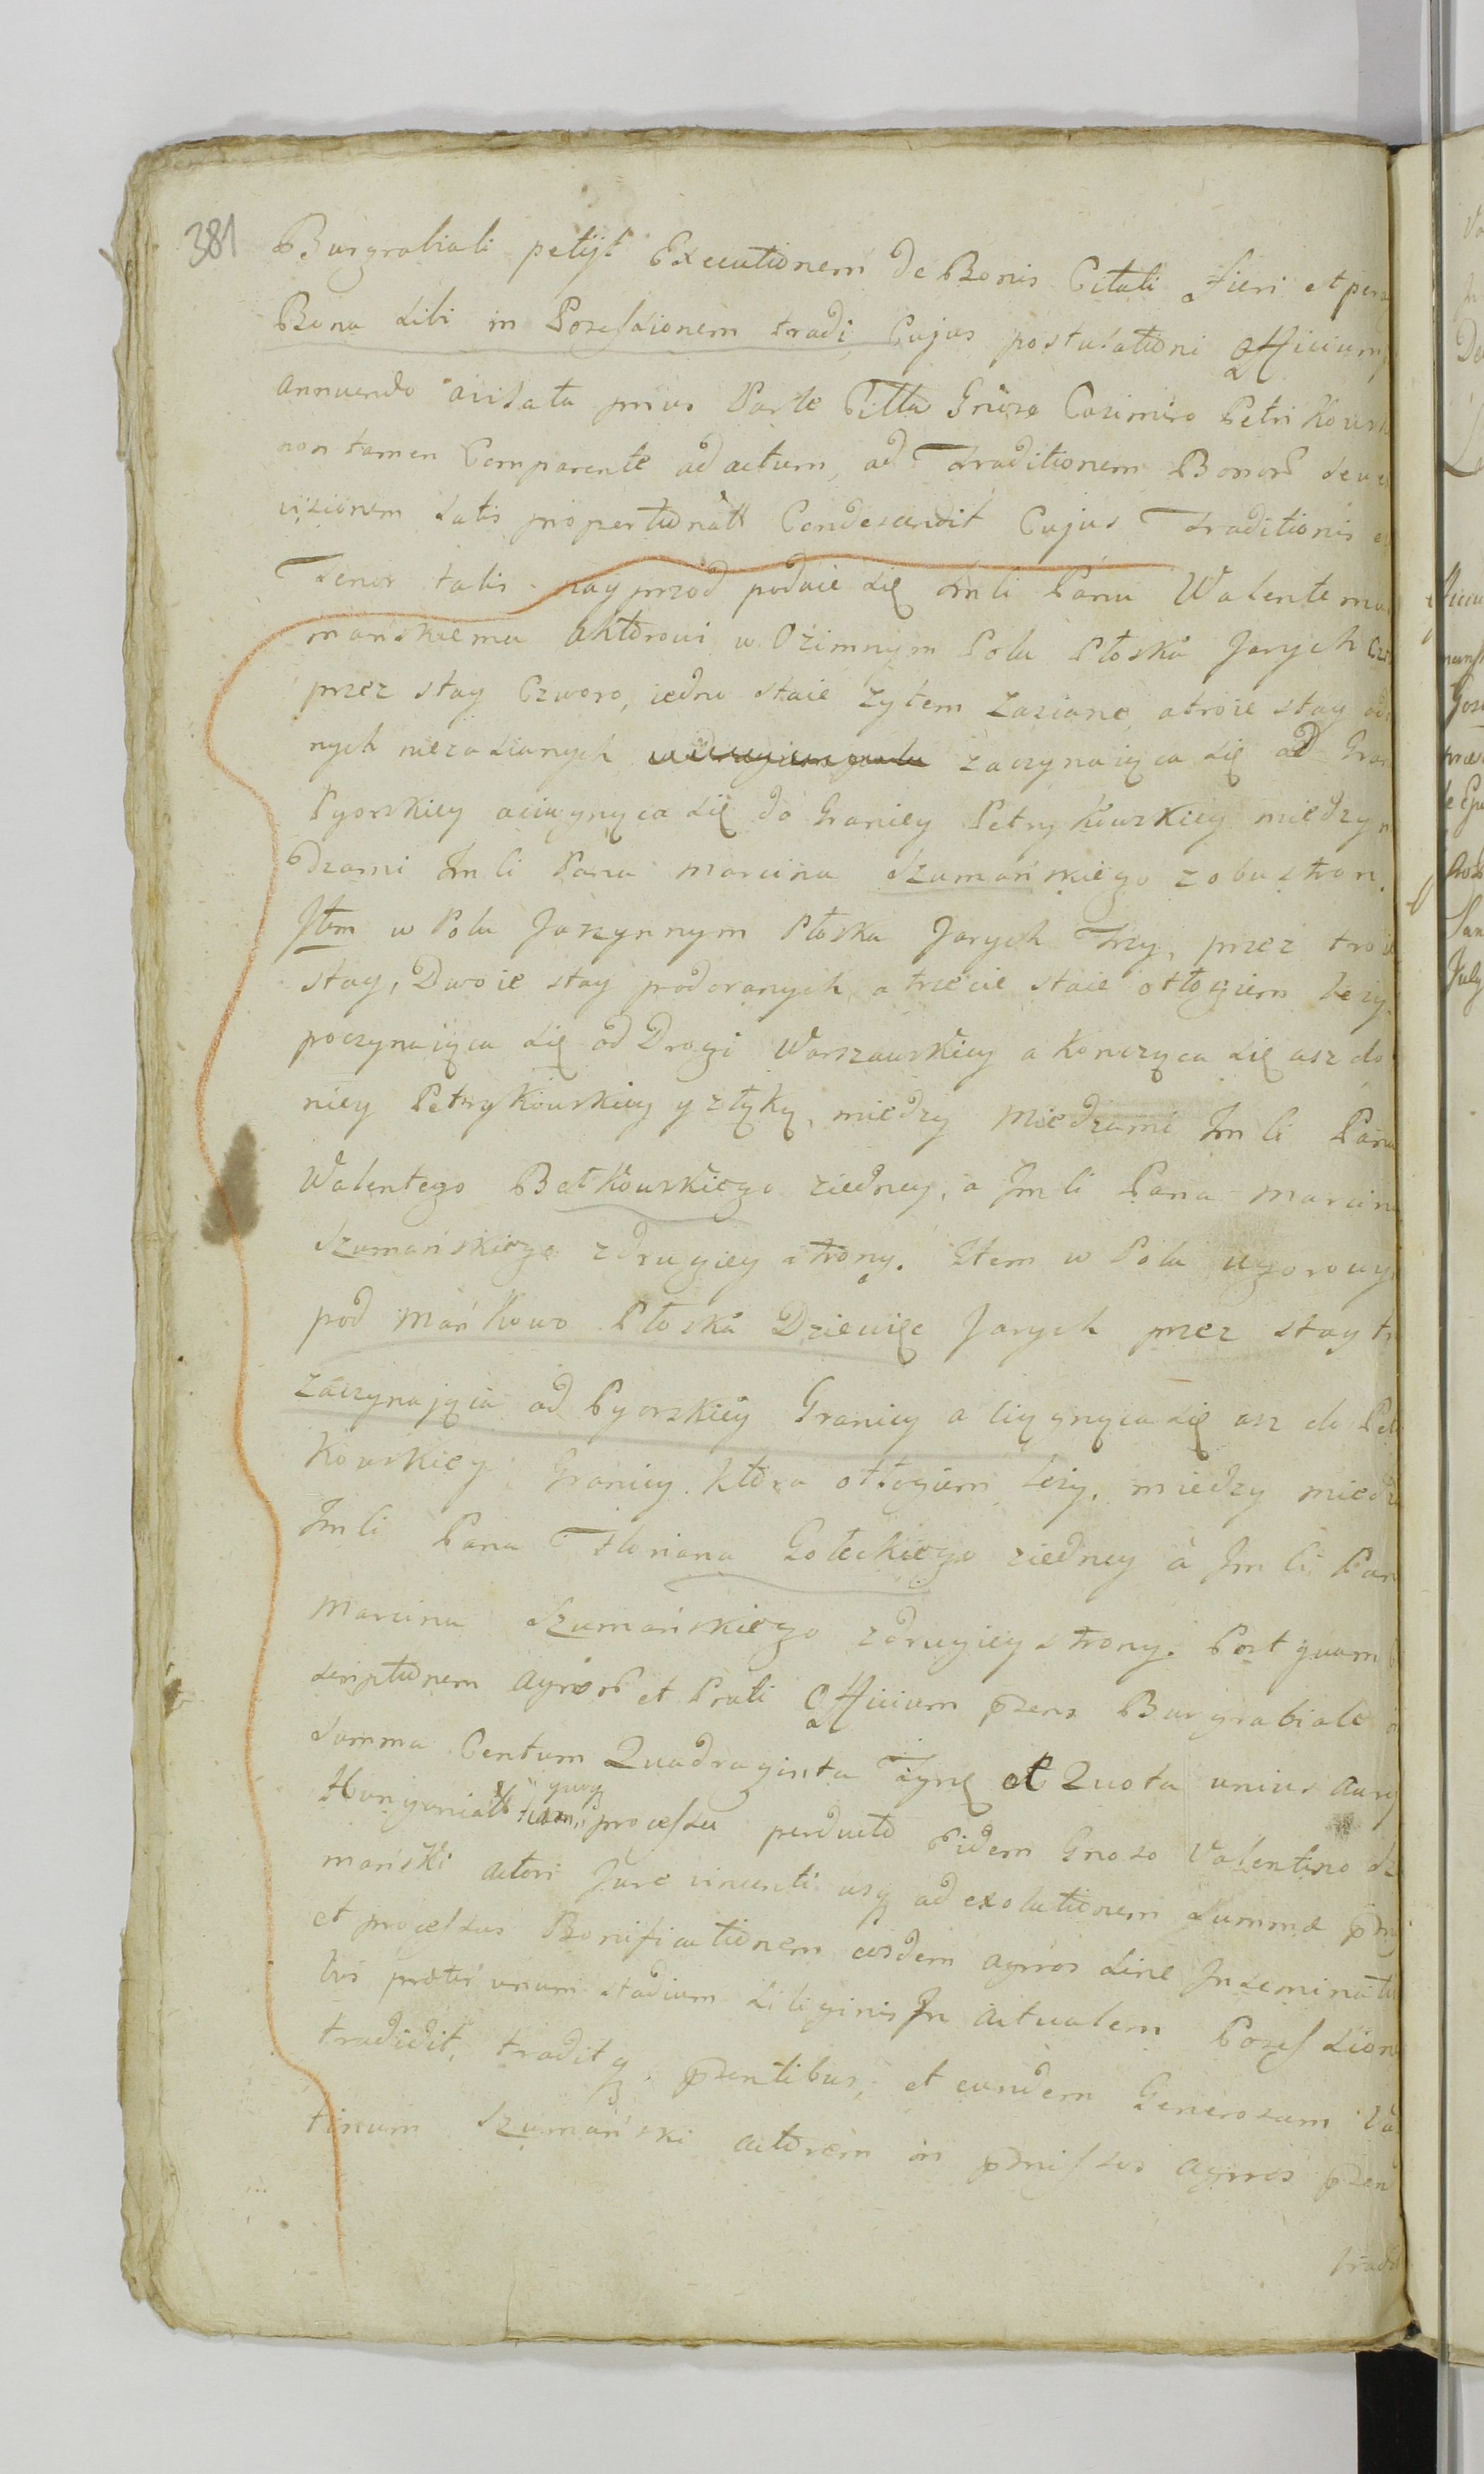 381
Burgrabiali petijt Executionem de Bonis Citati Fieri et per
Bona Sibi in Possessionem tradi Cujus postulationi Officium
annuendo avisata prius Parte Citta Gnoso Casimiro Petrikowsk
non tamen Comparente ad actum, ad Traditionem Bonor
visionem Satis Condescendit Cujus Traditionis
Tenor talis. nayprzod podaie się Jmli Panu Walentemu
mańskiemu aktorowi w Ozimnym Polu Płoska Jarych
przez stay Czworo, iedno staie żytem zasiane, a troie stay
nych niezasianych zaczynaiąca się od Gran
Pgorskiey aciągnąca się do Granicy Petrykowskiey między
dzami Jmli Pana Marcina Szumańskiego z obu stron.
Jtem w Polu Jarzynnym Płoska Jarych Trzy, przez troie
stay, Dwoie stay podoranych, a trzecie staie odłogiem leży.
poczynaiąca się od Drogi Warszawskiey a Kończąca się asz do
nicy Petrykowskiey y z łąką, między Miedzami Jmli Pana
Walentego Betkowskiego ziedney, a Jmli Pana Marcina
Szumańskiego zdrugiey strony. Item w Polu ugorowy
pod Mańkowo Płoska Dziewięc Jarych przez stay
zaczynająca od Pgorskiey Granicy a ciągnąca się asz do Pet
Kowskiey Granicy. Ktora otłogiem leży. między miedz
Jmli Pana Floriana Gołeckiego ziedney a Jmli Pan
Marcina Szumańskiego zdrugiey strony. Post quam
scriptionem agror et Prati Officium pzens Burgrabiale
Summa Centum Quadraginta Tynf et Quota unius aurej
quoq
processu perducto Eidem Gnoso Valentino Sz
mański actori Jure vincenti usq ad exolutionem Summæ
et processus Bonificationem eosdem agros Sine Inseminatio
bus præter unum stadium Siliginis In actualem Possession
tradidit, traditq pzentibus, et eundem Generosum Va
tinum Szumański actorem in pmissos agros pzen
trad